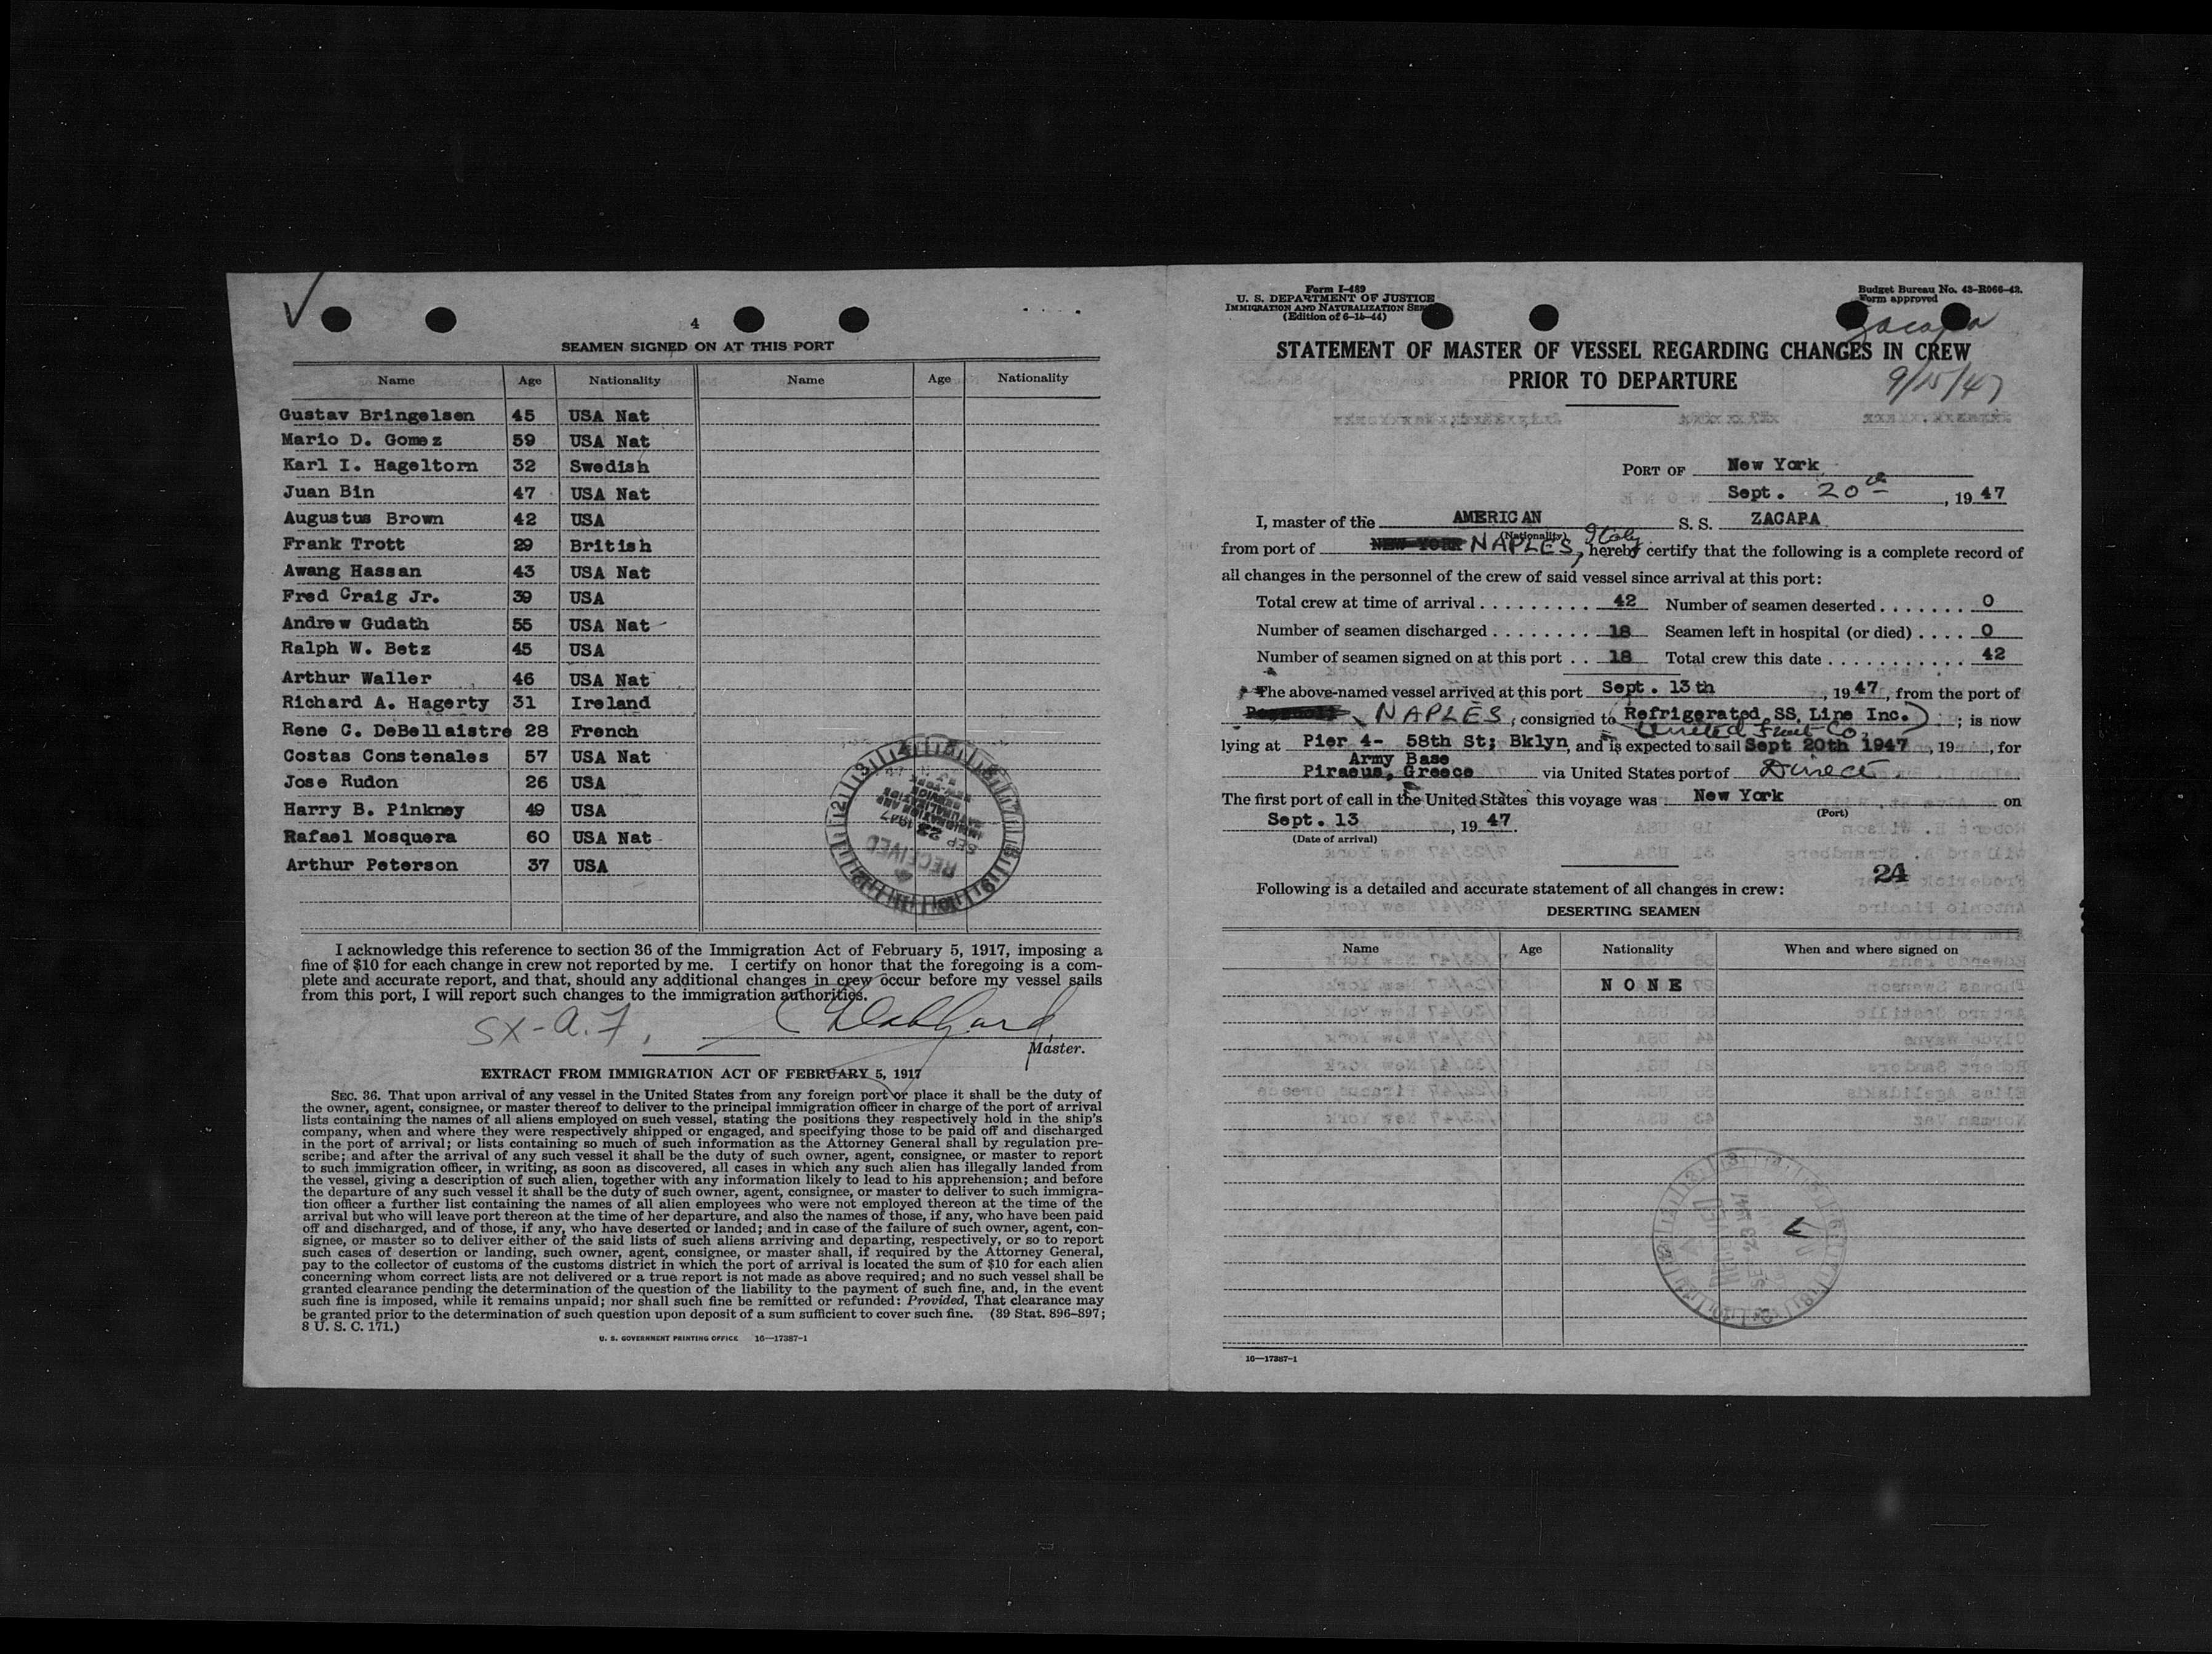 4
SEAMEN SIGNED ON AT THIS PORT
Name Age Nationality Name Age Nationality
Gustav Bringelsen 45 USA Nat
Mario D. Gomez 59 USA Nat
Karl I. Hageltorn 32 Swedish
Juan Bin 47 USA Nat
Augustus Brown 42 USA
Frank Trott 29 British
Awang Hassan 43 USA Nat
Fred Craig Jr. 39 USA
Andrew Gudath 55 USA Nat
Ralph W. Betz 45 USA
Arthur Waller 46 USA Nat
Richard A. Hagerty 31 Ireland
Rene C. DeBellaistre 28 French
Costas Constenales 57 USA Nat
Jose Rudon 26 USA
Harry B. Pinkney 49 USA
Rafael Mosquera 60 USA Nat
Arthur Peterson 37 USA
RECEIVED
SEP 23 1947
IMMIGRATION AND
NATURALIZATION
SERVICE
I acknowledge this reference to section 36 of the Immigration Act of February 5, 1917, imposing a
fine of $10 for each change in crew not reported by me. I certify on honor that the foregoing is a com-
plete and accurate report, and that, should any additional changes in crew occur before my vessel sails
from this port, I will report such changes to the immigration authorities.
SX-A.7.
Master.
EXTRACT FROM IMMIGRATION ACT OF FEBRUARY 5, 1917
SEC. 36. That upon arrival of any vessel in the United States from any foreign port or place it shall be the duty of
the owner, agent, consignee, or master thereof to deliver to the principal immigration officer in charge of the port of arrival
lists containing the names of all aliens employed on such vessel, stating the positions they respectively hold in the ship's
company, when and where they were respectively shipped or engaged, and specifying those to be paid off and discharged
in the port of arrival; or lists containing so much of such information as the Attorney General shall by regulation pre-
scribe; and after the arrival of any such vessel it shall be the duty of such owner, agent, consignee, or master to report
to such immigration officer, in writing, as soon as discovered, all cases in which any such alien has illegally landed from
the vessel, giving a description of such alien, together with any information likely to lead to his apprehension; and before
the departure of any such vessel it shall be the duty of such owner, agent, consignee, or master to deliver to such immigra-
tion officer a further list containing the names of all alien employees who were not employed thereon at the time of the
arrival but who will leave port thereon at the time of her departure, and also the names of those, if any, who have been paid
off and discharged, and of those, if any, who have deserted or landed; and in case of the failure of such owner, agent, con-
signee, or master so to deliver either of the said lists of such aliens arriving and departing, respectively, or so to report
such cases of desertion or landing, such owner, agent, consignee, or master shall, if required by the Attorney General,
pay to the collector of customs of the customs district in which the port of arrival is located the sum of $10 for each alien
concerning whom correct lists are not delivered or a true report is not made as above required; and no such vessel shall be
granted clearance pending the determination of the question of the liability to the payment of such fine, and, in the event
such fine is imposed, while it remains unpaid; nor shall such fine be remitted or refunded: Provided, That clearance may
be granted prior to the determination of such question upon deposit of a sum sufficient to cover such fine. (39 Stat. 896-897;
8 U. S. C. 171.)
U. S. GOVERNMENT PRINTING OFFICE 16—17387-1
Form I-489
U. S. DEPARTMENT OF JUSTICE
IMMIGRATION AND NATURALIZATION
(Edition of 6-15-44)
Budget Bureau No. 43-R066-42.
Form approved
Zacapa
STATEMENT OF MASTER OF VESSEL REGARDING CHANGES IN CREW
PRIOR TO DEPARTURE
9/15/47
PORT OF New York
Sept. 20th, 19 47
I, master of the AMERICAN S. S. ZACAPA
(Nationality)
from port of NEW YORK NAPLES, Italy hereby certify that the following is a complete record of
all changes in the personnel of the crew of said vessel since arrival at this port:
Total crew at time of arrival . . . . . . . . . . 42 Number of seamen deserted . . . . . . . 0
Number of seamen discharged . . . . . . . . 18 Seamen left in hospital (or died) . . . . 0
Number of seamen signed on at this port . . 18 Total crew this date . . . . . . . . . . . . 42
The above-named vessel arrived at this port Sept. 13th, 19 47, from the port of
NAPLES, consigned to (Refrigerated SS. Line Inc.); is now
United Fruit Co.
lying at Pier 4- 58th St; Bklyn, and is expected to sail Sept 20th 1947, 19 , for
Army Base
Piraeus, Greece via United States port of Direct
The first port of call in the United States this voyage was New York on
(Port)
Sept. 13, 19 47.
(Date of arrival)
24
Following is a detailed and accurate statement of all changes in crew:
DESERTING SEAMEN
Name Age Nationality When and where signed on
NONE
16—17387-1